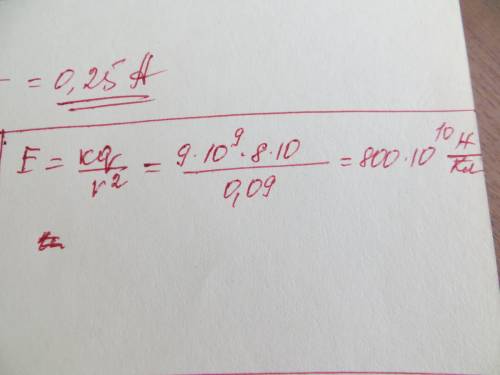 = 0,25 A
E = kq/r² = 9·10⁹·8·10/0,09 = 800·10¹⁰ Н/Кл